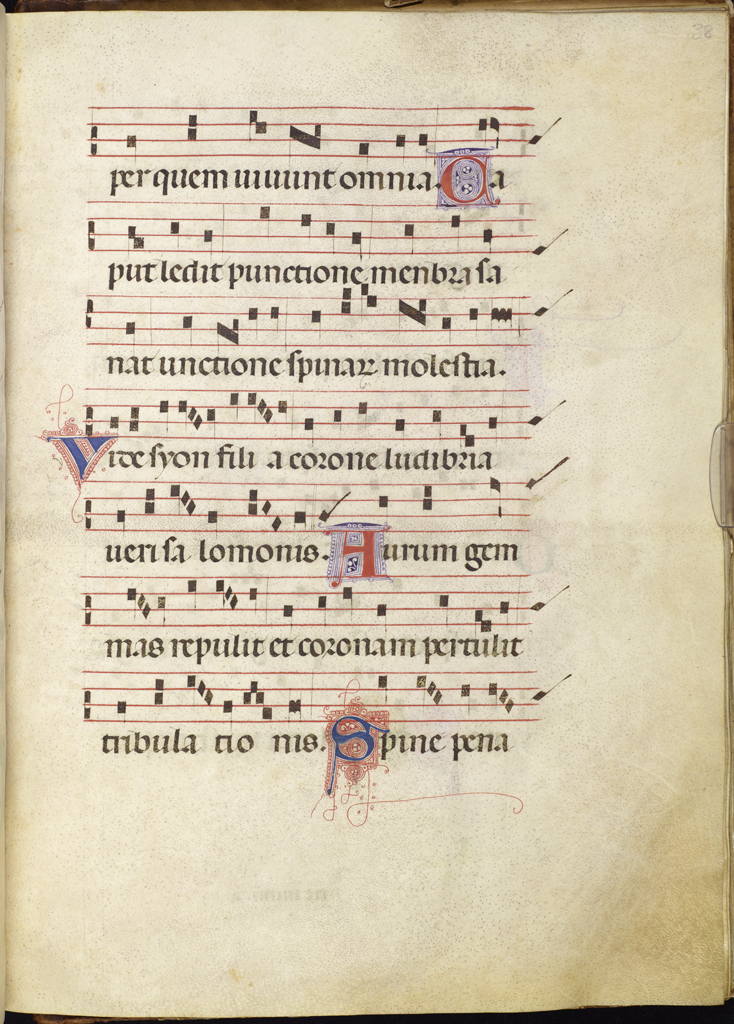 38
per quem uiuunt omnia. Ca
put ledit punctione menbra sa
nat unctione spinaꝝ molestia.
Vite syon fili a corone ludibria
ueri sa lomonis. Aurum gem
mas repulit et coronam pertulit
tribula tio nis. Spine pena